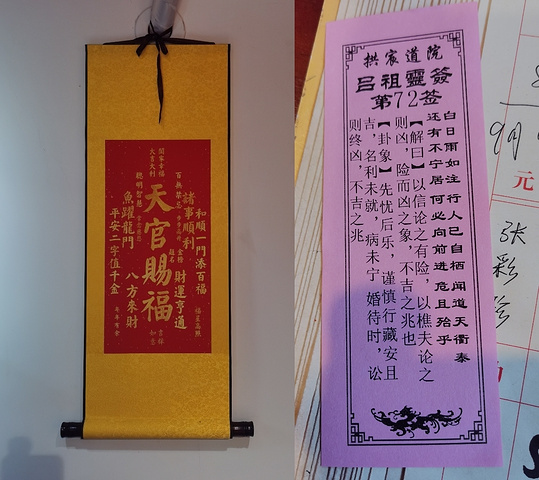 閤家幸福
大吉大利
百無禁忌
聰明智慧
天官賜福
諸事順利
和順一門添百福
魚躍龍門
平安二字值千金
金榜
題名
財運亨通
八方來財
福星高照
吉祥
如意
年年有余
拱宸道院
吕祖靈簽
第72签
白日雨如注 行人已自栖 闻道天衢泰
还有不宁居 何必向前进 危且殆乎
【解曰】以信论之有险，以樵夫论之
则凶，险而凶之象，不吉之兆也
【卦象】先忧后乐，谨慎行藏安且
吉，名利未就，病未宁 婚待时，讼
则终凶，不吉之兆
9月
元
张
彩